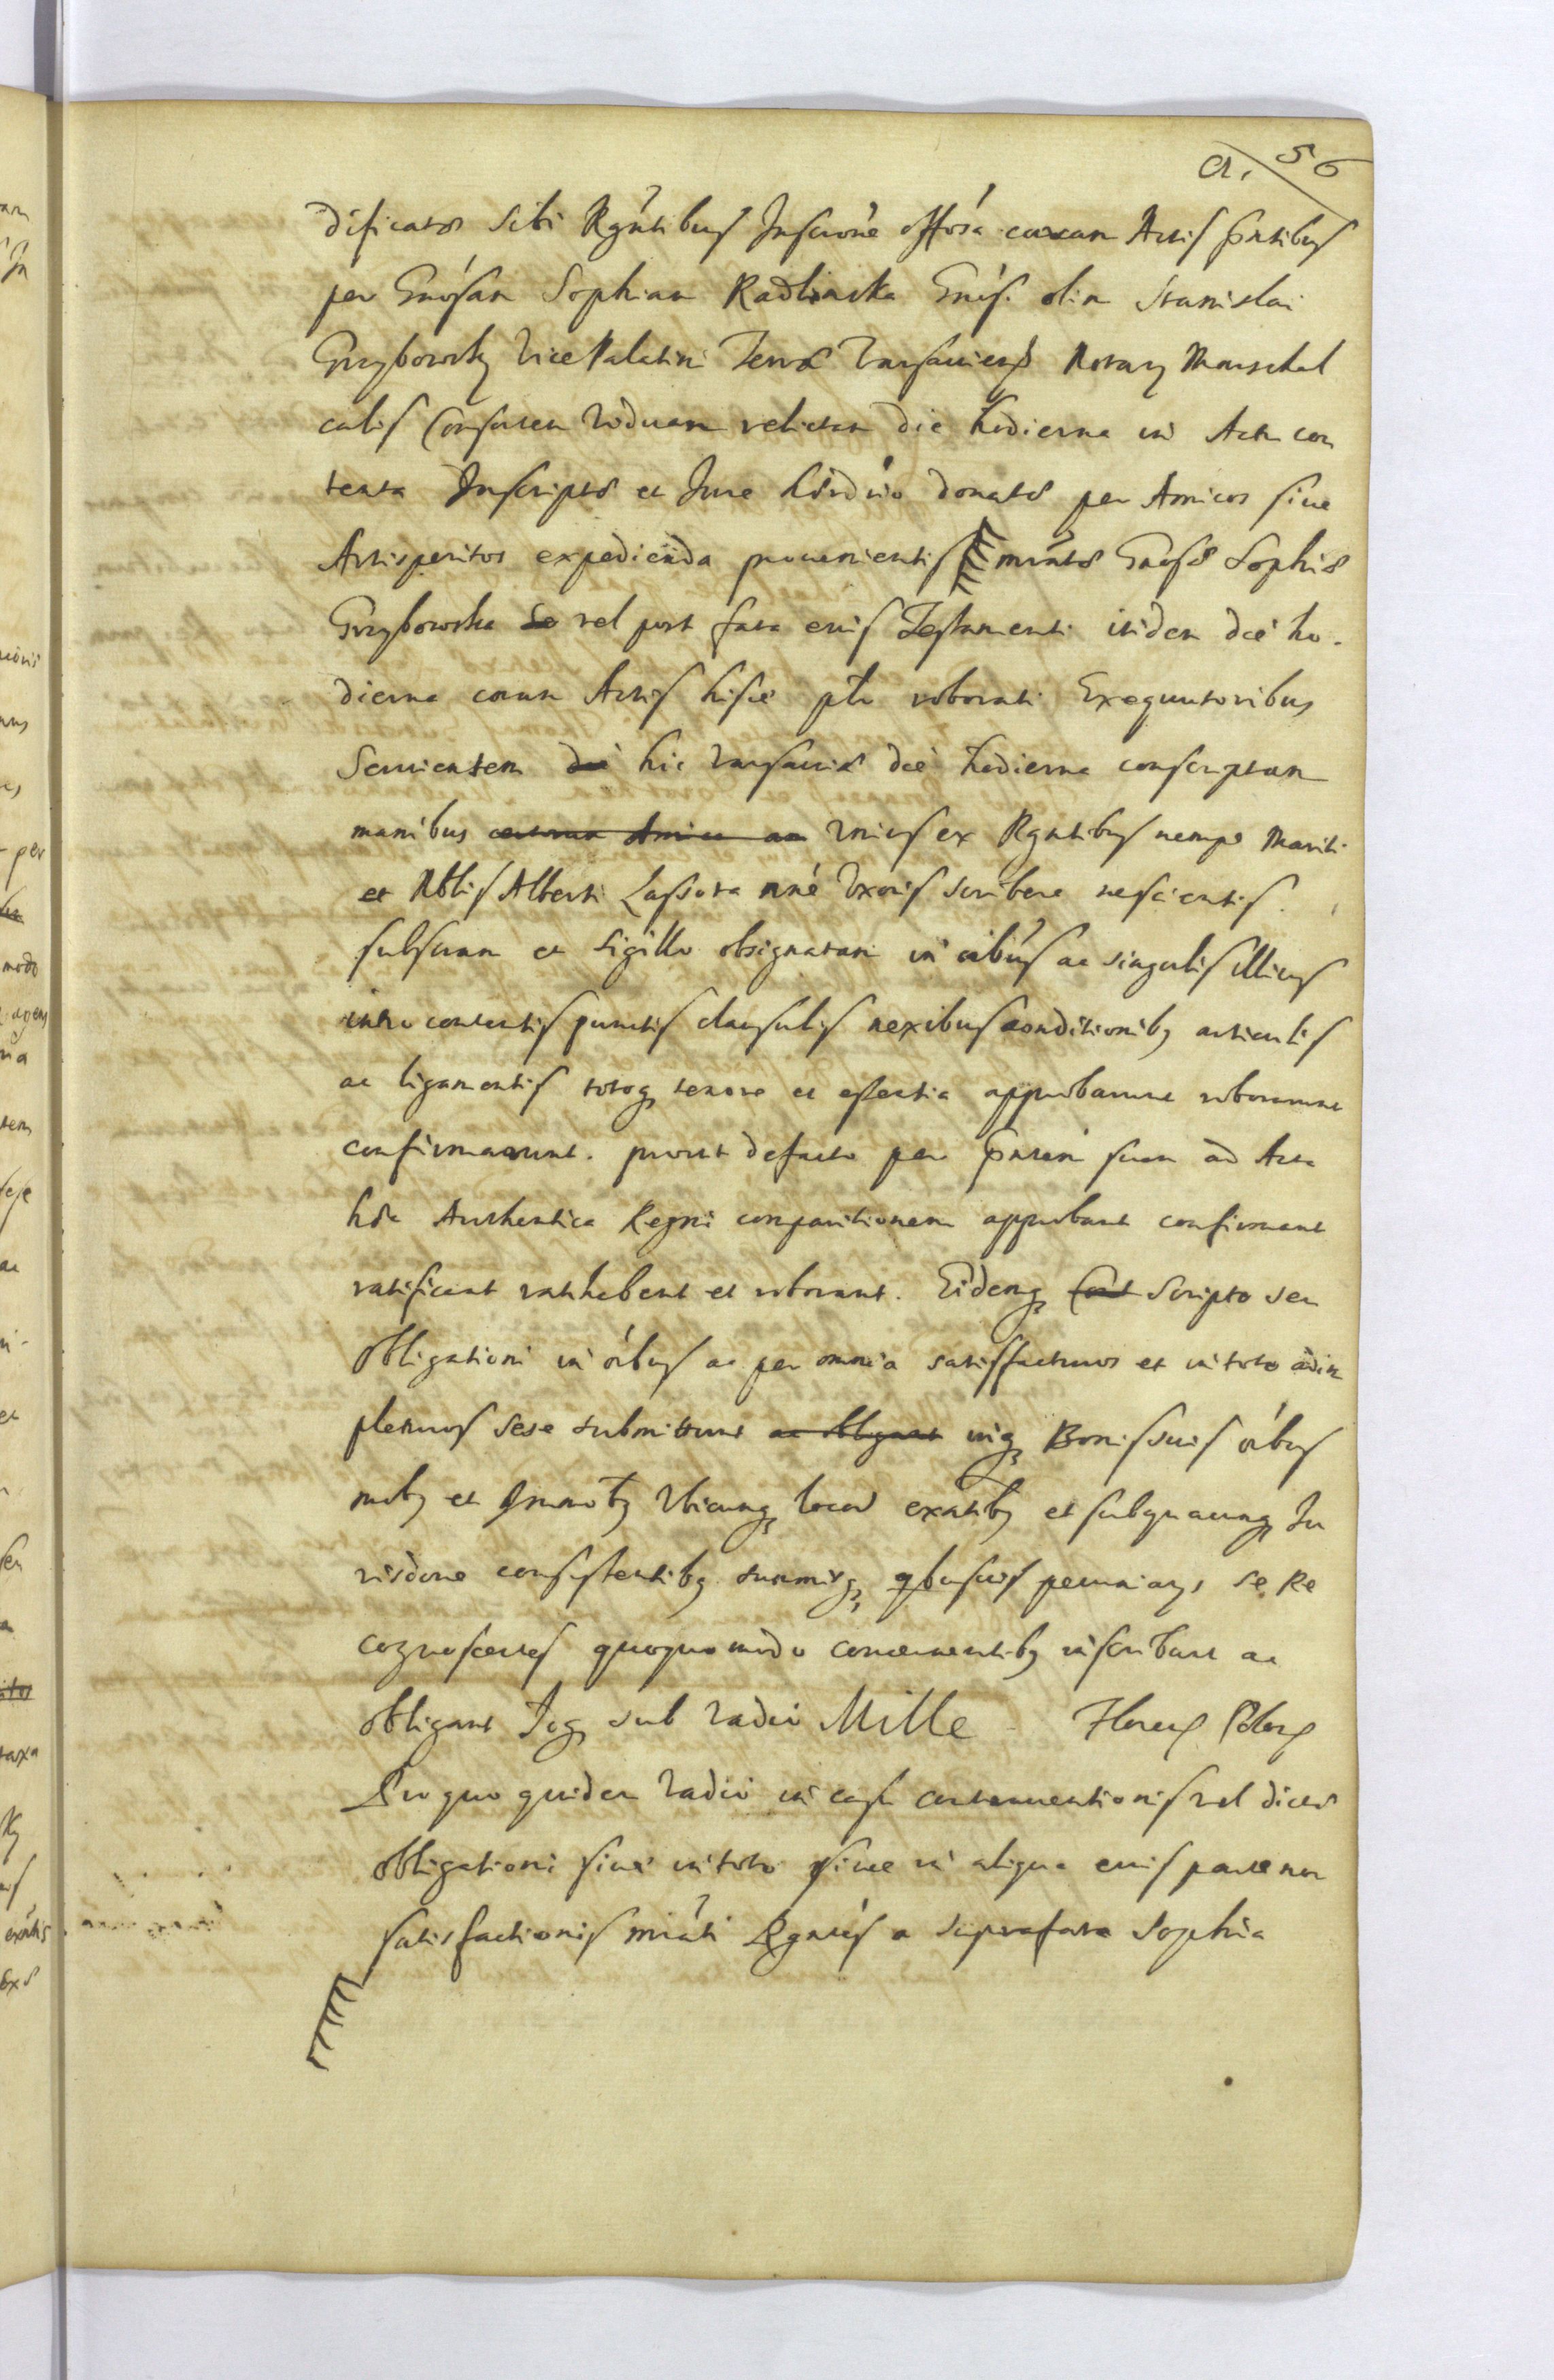 a. 56
dificatæ sibi Rgntibus Inscrõne offõsa coram Actis pntibus
per Gnosam Sophiam Radlinska Gnosi olim Stanislai
Grzybowsky Vice Palatini Terræ Varsaviens Notary Marschal
calis Consortem Viduam relictam die hodierna in Actu con
tenta Inscriptæ et Jure hærdrio donatæ per Amicos sive
Artisperitos expedienda provenientis mntæ Gnosæ Sophiæ
Grzybowska se vel post fata eius Testamenti itidem die ho-
dierna coram Actis hisce ptr roborati Exequutoribus
Servientem die hic Varsaviæ die hodierna conscriptam
manibus Amici ac Unius ex Rgntibus nempe Mariti
et Nblis Alberti Lassota nne Uxoris scribere nescientis
subscram et sigillo obsignatam in oibus ac singulis illius
intro contentis punctis clausulis nexibus conditionibg articulis
ac ligamentis totoq tenore et essentia approbarunt roborarunt
confirmarunt. prout defacto per pntem suam ad Acta
hæc Authentica Regni comparitionem approbant confirmant
ratificant ratihabent et roborant. Eidemq Scripto seu
Obligationi in oibus ac per omnia satisfacturos et in toto adim
pleturos sese submittunt ac obligant inq Bonis suis oibus
mobg et Immobg Ubicunq locor exntibg et subquacunq Ju
risdone consistentibg summisq qbusvis pecuniarys se Re
cognoscentes quoquo modo concernentibg inscribunt ac
obligant Idq sub Vadio Mille Floren Polon
Pro quo quidem Vadio in casu contraventionis vel dictæ
obligationi sive in toto sive in aliqua eius parte non
satisfactionis mnati Rgntes a suprafata Sophia